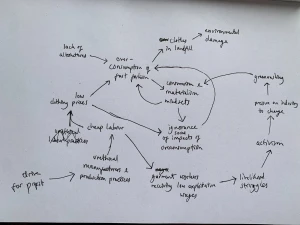 lack of
alterations
over-
consumption of
fast fashion
clothes
in landfill
environmental
damage
consumer &
materialism
mindsets
greenwashing
pressure on industry
to change
low
clothing prices
cheap labour
ignorance
some
of impacts of
overconsumption
activism
unethical
manufacturing &
production practices
garment workers
receiving low exploitative
wages
livelihood
struggles
drive
for profit